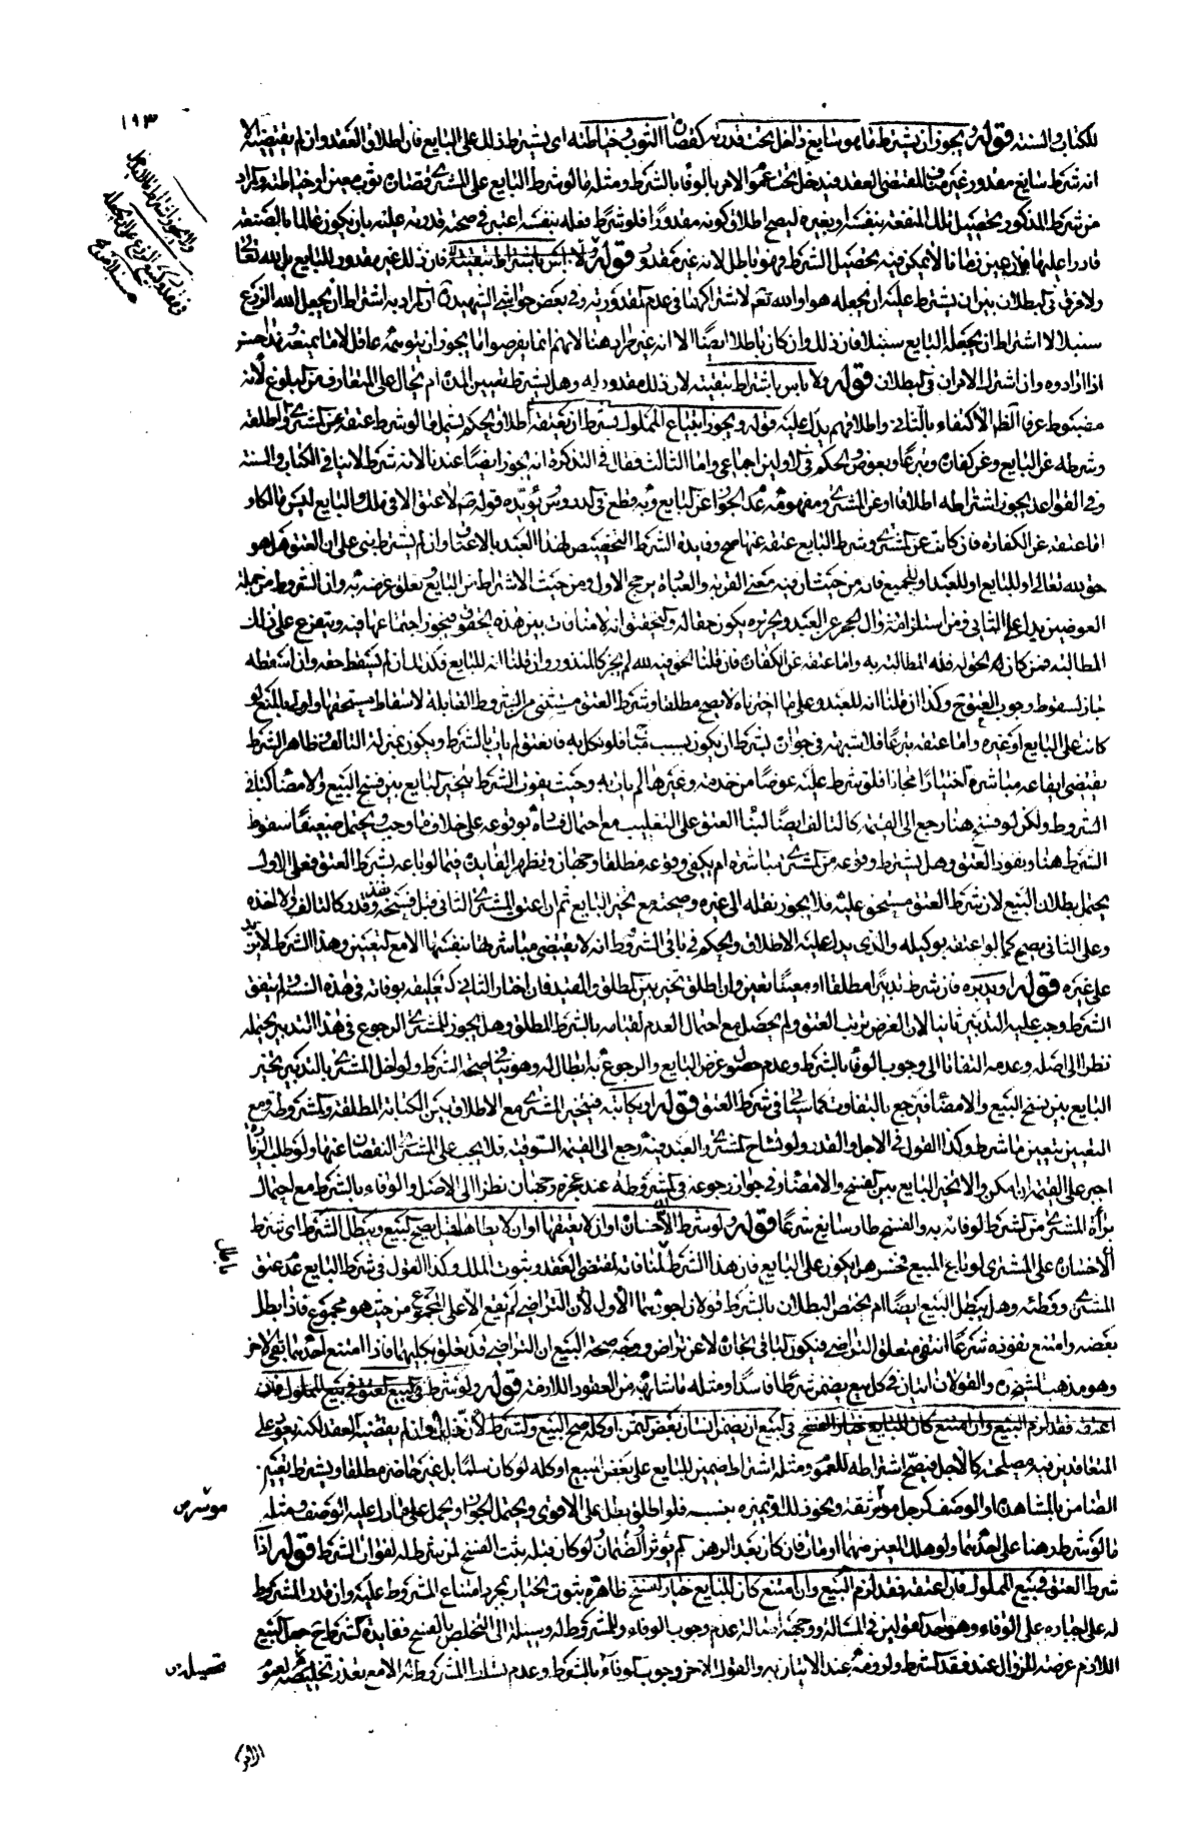 ١٩٣
للكتاب والسنة قوله يجوز ان يشترط ما هو سايغ داخل تحت قدرته كقصارة الثوب وخياطته اى يشترط ذلك على البايع فان اطلاق العقد وان لم يقتضيه الا
انه شرط سايغ مقدور غير مناف للمقتضى العقد فيدخل تحت عموم الامر بالوفاء بالشرط ومثله ما لو شرط البايع على المشترى قصارة ثوب معين او خياطته والمراد
من شرط المذكور تحصيل تلك المنفعة بنفسه او بغيره ليصح اطلاق كونه مقدورا فلو شرط فعله بنفسه اعتبر فى صحته قدرته عليه بان يكون عالما بالصنعة
قادرا عليها فلو عين زمانا لا يمكن فيه تحصيل الشرط فهو باطل لانه غير مقدور قوله لا باس باشتراط تبقيته فان ذلك غير مقدور للبايع بل لله تعالى
ولا فرق فى البطلان بين ان يشترط عليه ان يجعله هو او الله تعم لاشتراكهما فى عدم المقدورية وفى بعض حواشى الشهيد ان المراد به اشتراط ان يجعل الله الزرع
سنبلا لا اشتراط ان يجعله البايع سنبلا فان ذلك وان كان باطلا ايضا الا انه غير مراد هنا لانهم انما يفرضوا ما يجوز ان يتوهمه عاقل لا ما يمتنع
اذا ارادوه وان اشترك الامران فى البطلان قوله ولا باس باشتراط تبقيته لان ذلك مقدور له وهل يشترط تعيين المدة ام يحال على المتعارف من البلوغ لانه
مضبوط عرفا الظاهر الاكتفاء بالثانى واطلاقهم يدل عليه قوله ويجوز ابتياع المملوك بشرط ان يعتقه اطلاق الحكم يشمل ما لو شرط عتقه عن المشترى واطلقه
وشرطه عن البايع وعن كفارة وتبرعا وهو موضع الحكم فى الاولين اجماعى واما الثالث فقال فى التذكرة انه يجوز ايضا عندنا لانه شرط لا ينافى الكتاب والسنة
وفى القواعد يجوز اشتراطه اطلاقا او عن المشترى ومفهومه عدم الجواز عن البايع وبه قطع فى الدروس ويؤيده قوله صم لا عتق الا فى ملك والبايع ليس بمالك
اما عتقه عن الكفارة فان كانت عن المشترى وشرط البايع عتقه عنها صح وفايدة الشرط التخصيص لهذا العبد بالاعتاق وان لم يشترط بنى على ان العتق هل هو
حق لله تعالى او للبايع او للعبد او للجميع فانه من حيث ان فيه معنى القربة والعبادة يرجح الاول ومن حيث الاشتراط من البايع وتعلق غرضه به وان الشروط من جملة
العوضين يدل على الثانى ومن استلزامه زوال الحجر عن العبد وتحريره يكون حقا له والتحقيق انه لا منافات بين هذه الحقوق فيجوز اجتماعها فيه ويتفرع على ذلك
المطالبة فمن كان له الحق له فله المطالبة به واما عتقه عن الكفارة فان قلنا الحق فيه لله لم يجز كالمنذور وان قلنا انه للبايع فكذلك ان لم يسقط حقه وان اسقطه
جاز لسقوط وجوب العتق ح وكذا ان قلنا انه للعبد وعلى ما اخترناه لا يصح مطلقا وشرط العتق مستثنى من الشروط القابلة لاسقاط مستحقها
كانت على البايع او غيره واما عتقه تبرعا فلا شبهة فى جوازه
يقتضى ايقاعه مباشرة اختيارا مجانا فلو شرط عليه عوضا من خدمة وغيرها لم يات به وحيث يفوت الشرط يتخير البايع بين فسخ البيع والامضاء كباقى
الشروط ولكن لو فسخ هنا رجع الى القيمة كالتالف ايضا لبناء العتق على التغليب مع احتمال فساده لوقوعه على خلاف ما وجب ويحتمل ضعيفا سقوط
الشرط هنا ونفوذ العتق وهل يشترط وقوعه من المشترى مباشرة ام يكفى وقوعه مطلقا وجهان وتظهر الفايدة فيما لو باعه بشرط العتق فعلى الاول
يحتمل بطلان البيع لان شرط العتق مستحق عليه فلا يجوز نقله الى غيره وصحته مع تخير البايع ثم ان اعتق المشترى الثانى قبل فسخه نفذ وقدر كالتالف والا اخذه
وعلى الثانى يصح كما لو اعتقه بوكيله والذى يدل عليه الاطلاق والحكم فى باقى الشروط انه لا يقتضى مباشرتها بنفسه الا مع التعيين وهذا الشرط لا يزيد
على غيره قوله او يدبره فان شرط تدبيرا مطلقا او معينا تعين وان اطلق تخير بين المطلق والمقيد فان اختار الثانى كتعليقه بوفاته فى هذه السنة ولم يتفق
الشرط وجب عليه التدبير ثانيا لان الغرض ترتب العتق ولم يحصل مع احتمال العدم لقيامه بالشرط المطلق وهل يجوز للمشترى الرجوع فى هذا التدبير يحتمله
نظرا الى اصله وعدمه التفاتا الى وجوب الوفاء بالشرط وعدم حصول غرض البايع والرجوع به ابطال له وهو ينافى صحة الشرط ولو اخل المشترى بالتدبير تخير
البايع بين فسخ البيع والامضاء فيرجع بالتفاوت كما سياتى فى شرط العتق قوله او يكاتبه فيتخير المشترى مع الاطلاق بين الكتابة المطلقة والمشروطة ومع
التعيين يتعين ما شرط وكذا القول فى الاجل والقدر ولو تشاح المشترى والعبد فيه رجع الى القيمة السوقية فلا يجب على المشترى النقصان عنها ولو طلب الزيادة
اجبر على القيمة ان امكن والا تخير البايع بين الفسخ والامضاء وفى جواز رجوعه فى المشروطة عند عجزه وجهان نظرا الى الاصل والوفاء بالشرط مع احتمال
براءة المشترى من الشرط لوفائه به والفسخ طار سايغ شرعا قوله ولو شرط الا خسارة او ان لا يعتقها او ان لا يطاها قيل يصح البيع ويبطل الشرط اى شرط
الا خسارة على المشترى لو باع المبيع فخسر هل يكون على البايع فان هذا الشرط لمنافاته لمقتضى العقد وثبوت الملك وكذا القول فى شرط البايع عدم عتق
المشترى ووطئه وهل يبطل البيع ايضا ام يختص البطلان بالشرط قولان اجودهما الاول لان التراضى لم يقع الا على المجموع من حيث هو مجموع فاذا بطل
بعضه وامتنع نفوذه شرعا انتفى متعلق التراضى فيكون الباقى تجارة لا عن تراض ووجه صحة البيع ان التراضى قد تعلق بكليهما فاذا امتنع احدهما بقى الاخر
وهو مذهب الشيخ ره والقولان اتيان فى كل بيع يضمن شرطا فاسدا ومثله ما شابهه من العقود اللازمة قوله ولو شرط فى البيع العتق فى بيع المملوك فان
اعتقه فقد لزم البيع وان امتنع كان للبايع خيار الفسخ فى البيع ان يضمن انسان بعض الثمن او كله صح البيع والشرط لان ذلك وان لم يقتضيه العقد لكنه يعود على
المتعاقدين فيه مصلحة كالاجل فيصح اشتراطه للعموم ومثله اشتراط ضمين للبايع على بعض المبيع او كله لو كان سلما بل غير حاضر مطلقا ويشترط تعيين
الضامن بالمشاهدة او الوصف كرجل موسر ثقة ونحو ذلك او تميزه بنسبه فلو اطلق بطل على الاقوى ويحتمل الجواز ويحمل على ما دل عليه الوصف ومثله
ما لو شرط رهنا على احدهما ولو هلك المعين منهما او مات فان كان بعد الرهن لم يؤثر والضمان ولو كان قبله يثبت الفسخ لمن شرط له لفوات الشرط قوله اذا
شرط العتق فى بيع المملوك فان اعتقه فقد لزم البيع وان امتنع كان للبايع خيار الفسخ ظاهره ثبوت الخيار بمجرد امتناع المشروط عليه وان قدر المشروط
له على اجباره على الوفاء وهو احد القولين فى المسالة ووجهه اصالة عدم وجوب الوفاء وللمشروط له وسيلة الى التخلص بالفسخ ففايدة الشرط ح جعل البيع
اللازم عرضة للزوال عند فقد الشرط ولزومه عند الاتيان به والقول الاخر وجوب الوفاء بالشرط وعدم تسلط المشروط له الا مع تعذر تحصيله لعموم
موسر ص
تحصيله ص